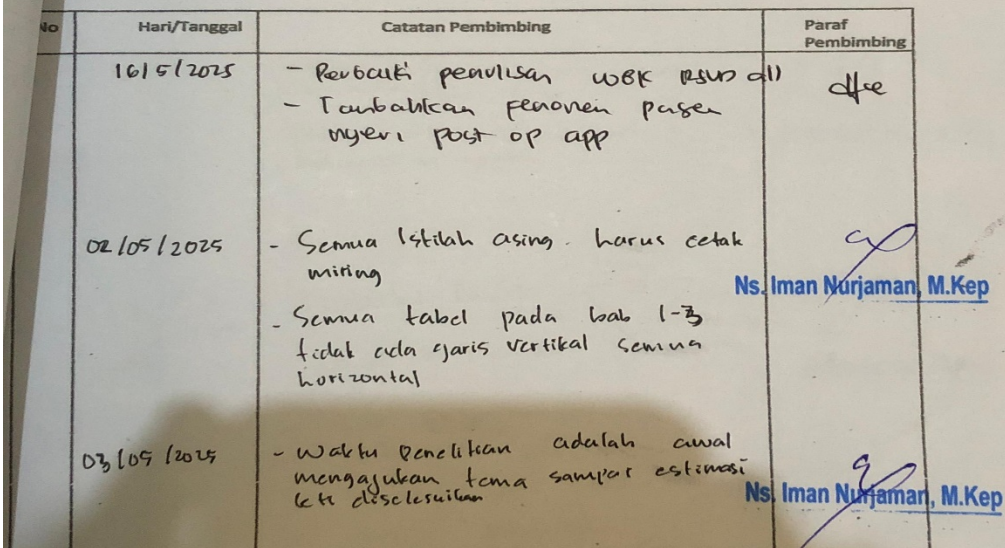 No Hari/Tanggal Catatan Pembimbing Paraf Pembimbing
16/5/2025 - Perbaiki penulisan WBK RSUD dll
- Tambahkan fenomen pasen
nyeri post op app
02/05/2025 - Semua Istilah asing harus cetak
miring
Ns. Iman Nurjaman, M.Kep
- Semua tabel pada bab 1-3
tidak ada garis vertikal semua
horizontal
03/05/2025 - Waktu penelitian adalah awal
mengajukan tema sampai estimasi
kti diselesaikan
Ns. Iman Nurjaman, M.Kep